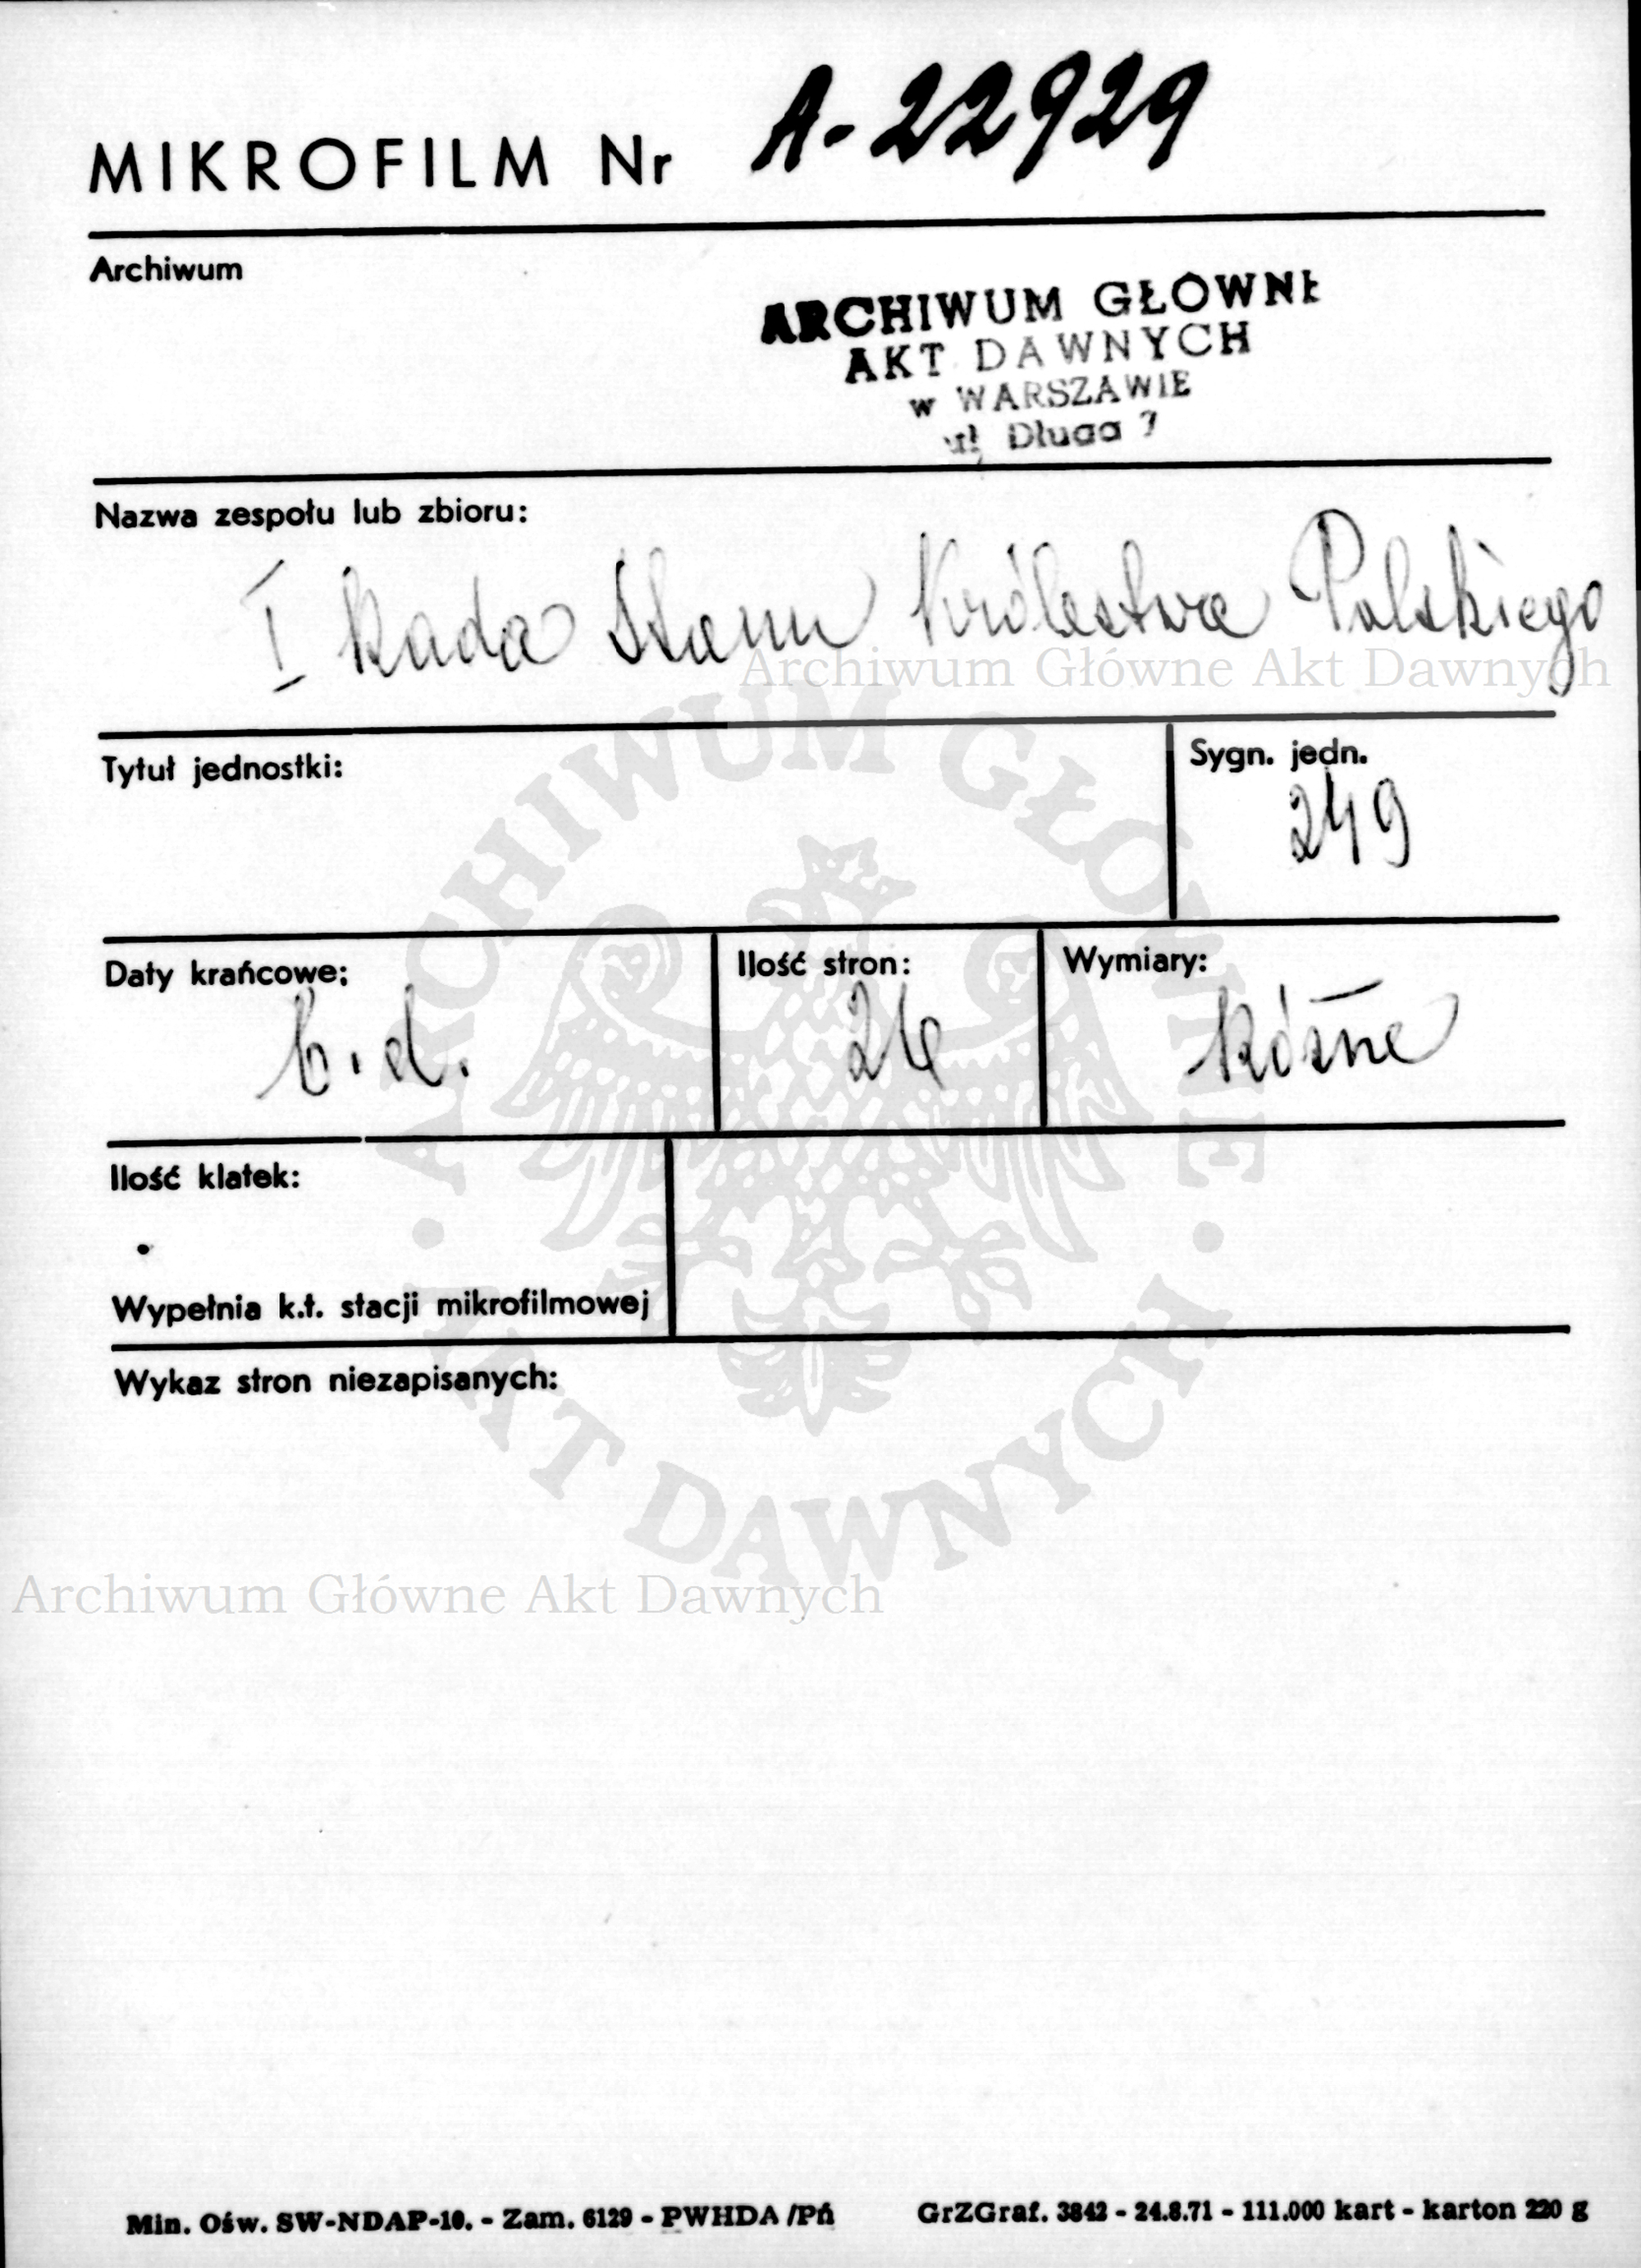 MIKROFILM Nr A-22929
Archiwum
ARCHIWUM GŁÓWNE
AKT DAWNYCH
w WARSZAWIE
ul. Długa 7
Nazwa zespołu lub zbioru:
I Rada Stanu Królestwa Polskiego
Archiwum Główne Akt Dawnych
Tytuł jednostki:
Sygn. jedn.
249
Daty krańcowe:
b.d.
Ilość stron:
26
Wymiary:
Różne
Ilość klatek:
Wypełnia k.t. stacji mikrofilmowej
Wykaz stron niezapisanych:
ARCHIWUM GŁÓWNE · AKT DAWNYCH ·
Archiwum Główne Akt Dawnych
Min. Ośw. SW-NDAP-10. - Zam. 6129 - PWHDA /Pń GrZGraf. 3842 - 24.8.71 - 111.000 kart - karton 220 g